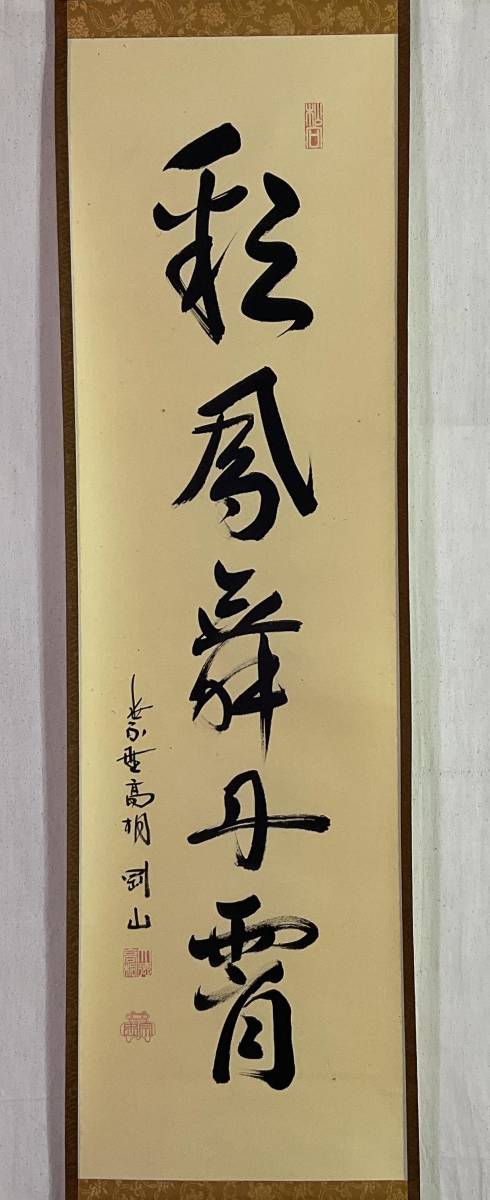 彩鳳舞丹霄
紫野高桐 剛山